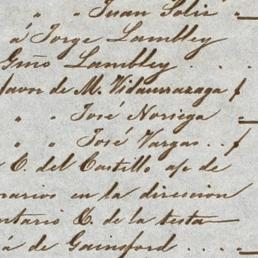 " " Juan Solir "
á Jorge Lambley
Gmo Lambley . .
favor de M. Vidaurrazaga f
" " José Noriega "
" " José Vargas . . f
C. del Castillo a/c de
narios en la direccion
ntario C. de la testa
á de Gainsford . . . .